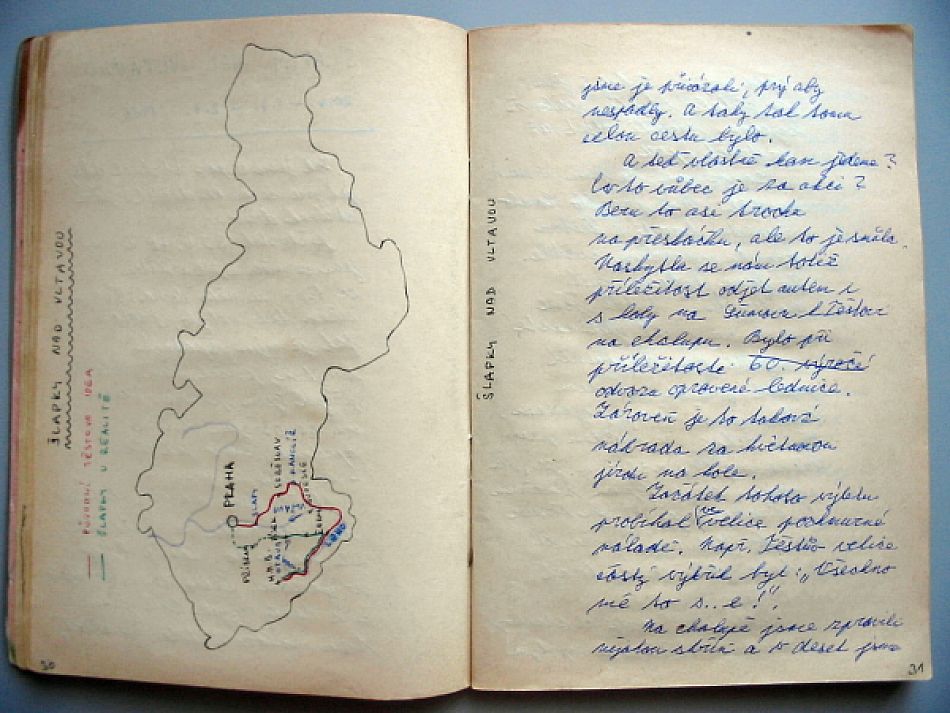 ŠLAPKY NAD VLTAVOU
PŮVODNÍ TĚSTOVA IDEA
ŠLAPKY V REALITĚ
PRAHA
SLAPY
LIPNO
30
ŠLAPKY NAD VLTAVOU
jsme je přivázali, prý aby
nespadly. A taky tak tomu
celou cestu bylo.
A teď vlastně kam jedeme?
Co to vůbec je za akci?
Beru to ase trochu
na přeskáčku, ale to je snůla.
Naskytla se nám totiž
příležitost odjet autem i
s koly na Šumavu k Těstovi
na chalupu. Bylo při
příležitosti 60. výročí
odvozu opravené lednice.
Zároveň je to taková
náhrada za
jízdu na kole.
Začátek tohoto výletu
probíhal ve velice pochmurné
náladě. Např. Těstův velice
častý výkřik byl: „Všechno
mě to s..e!".
Na chalupě jsme zpravili
a v deset jsme
31